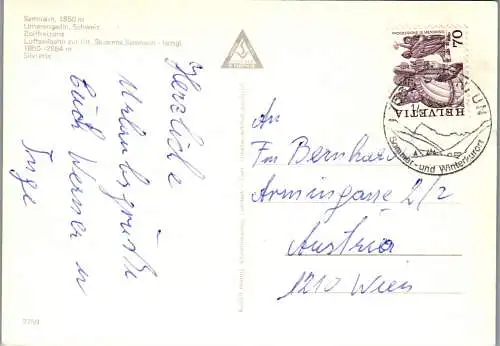 Samnaun, 1850 m
Unterengadin, Schweiz
Zollfreizone
Luftseilbahn zur int. Skiarena Samnaun - Ischgl
1850-2864 m
Silvretta
Herzliche
Urlaubsgrüße
Euch Werner u
Inge
70
HELVETIA
Sommer- und Winterkurort
An
Fm Bernhard
Armingasse 2/2
Austria
1210 Wien